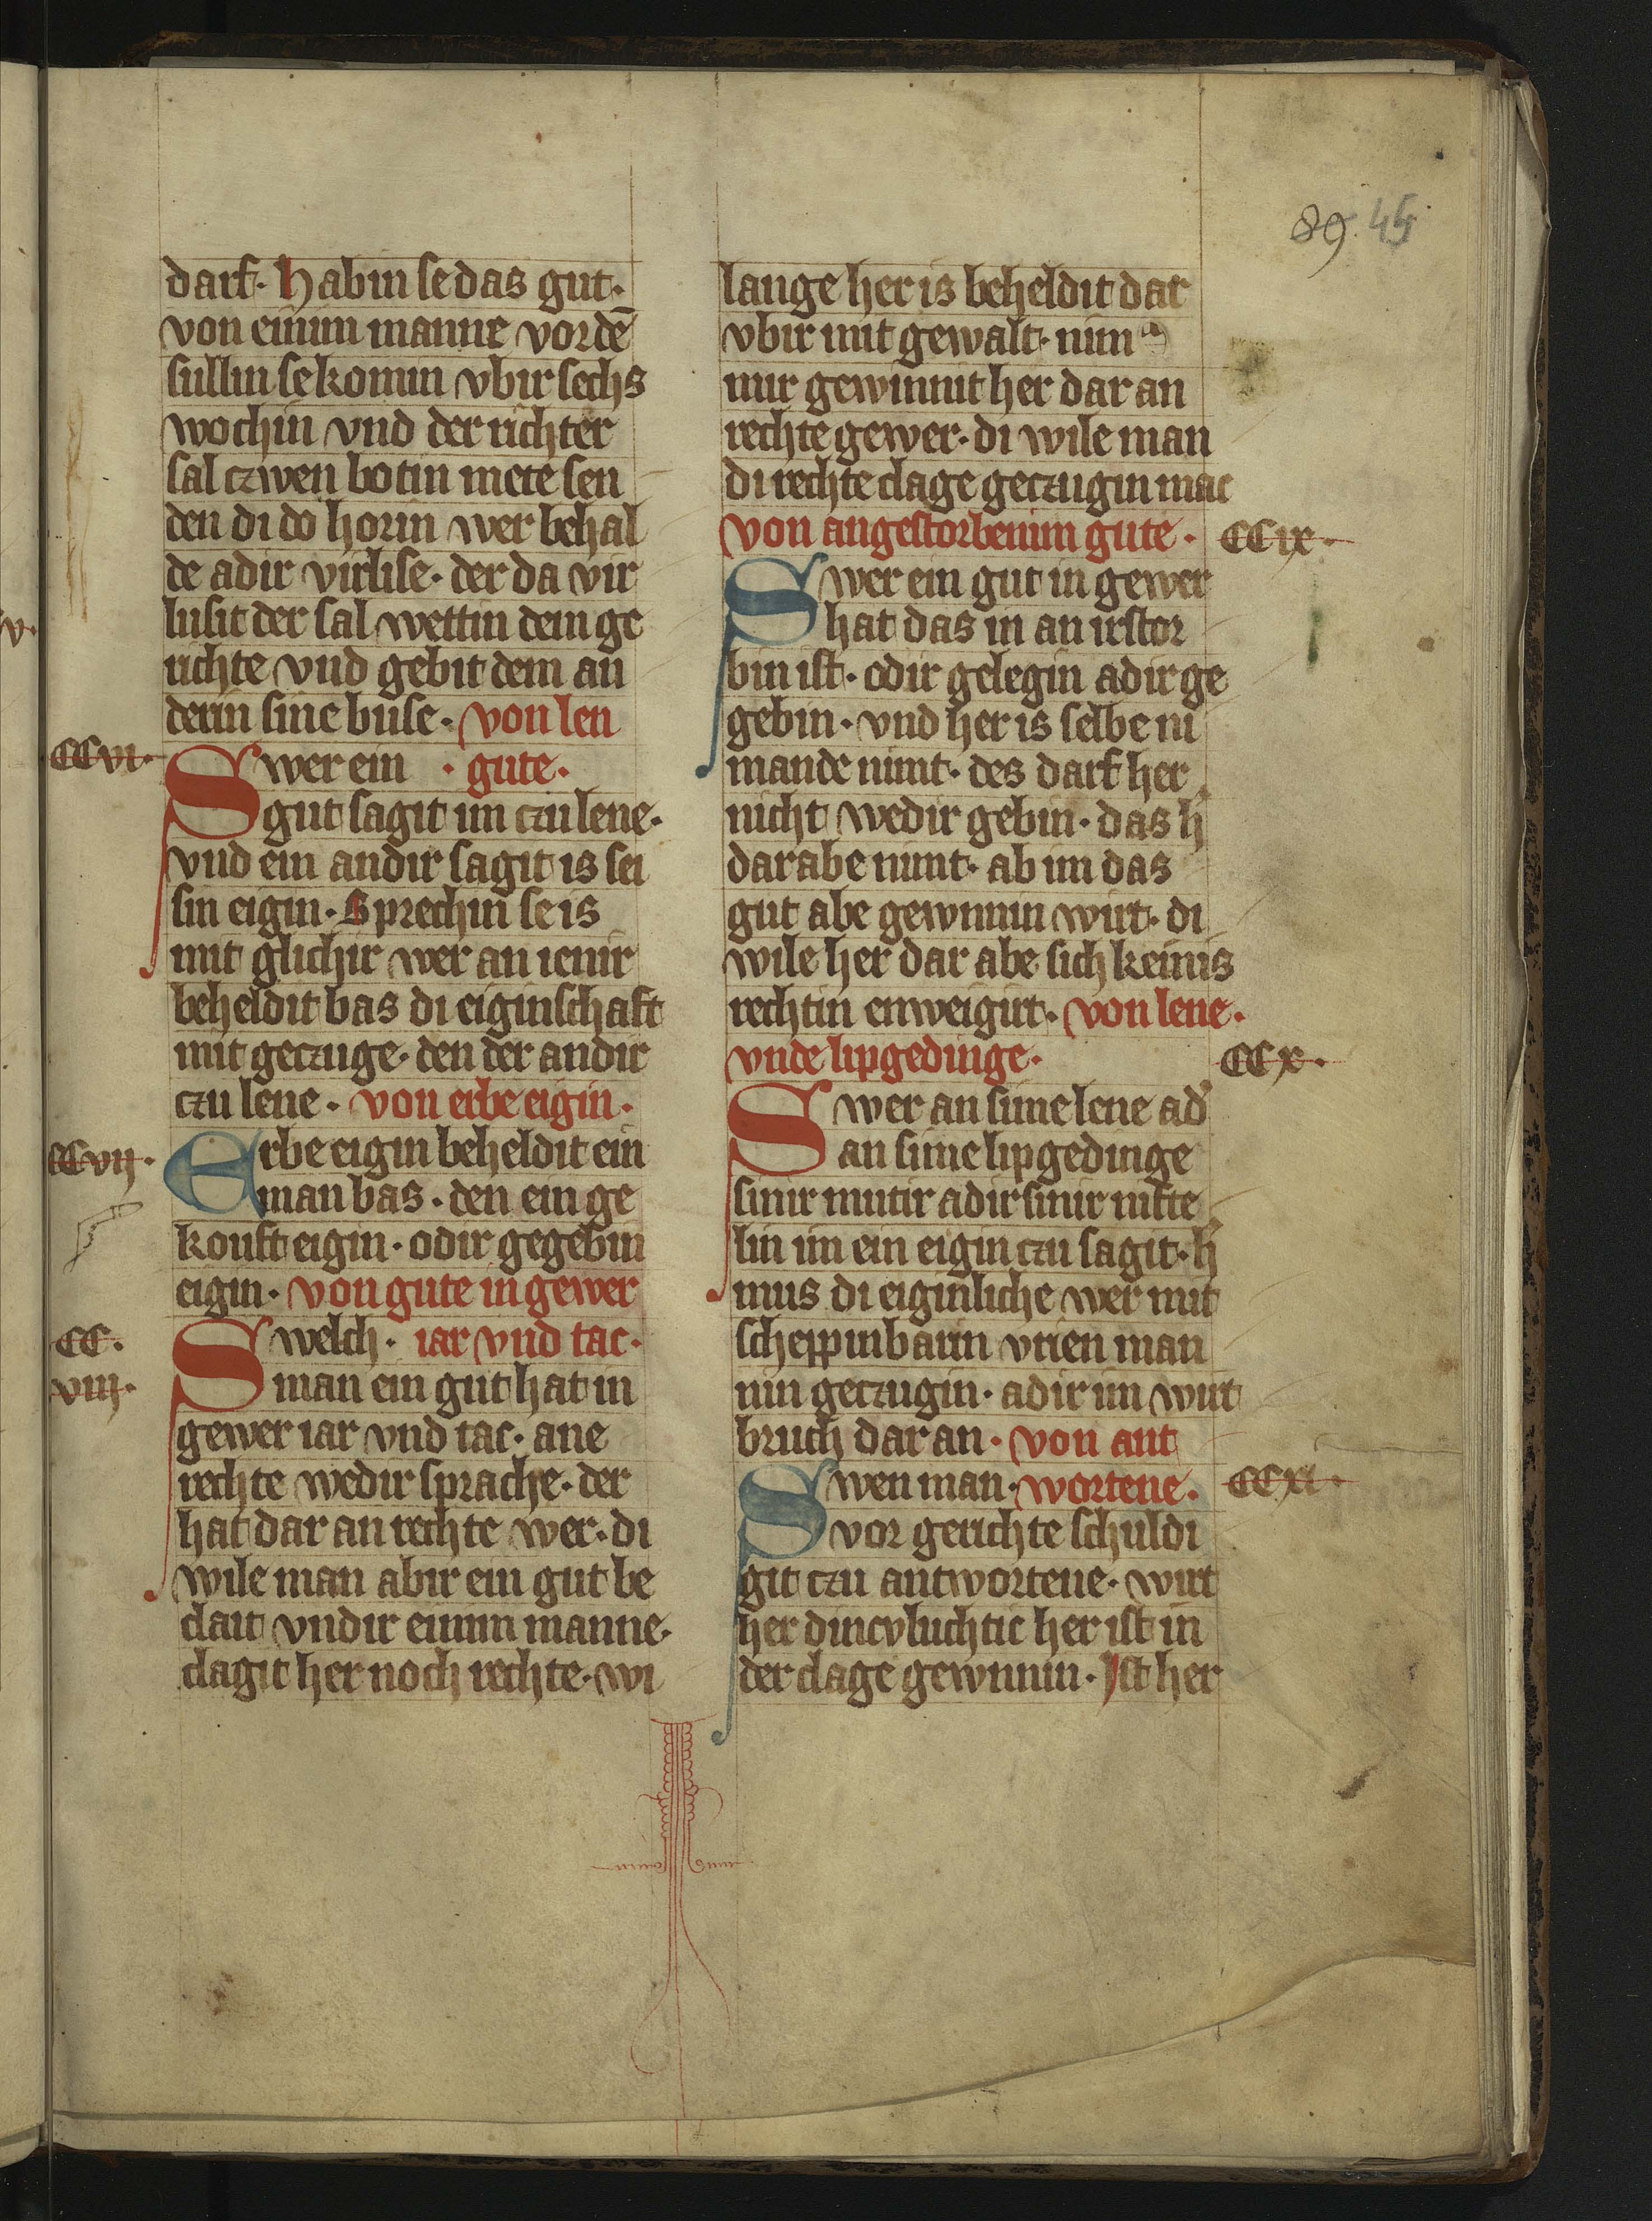 89. 45
darf. Habin se das gut.
von einim manne vordē
sullin se komin vbir sechs
wochin vnd der richter
sal czwen botin mete sen
den di do horin wer behal
de adir virlise. der da vir
lusit der sal wettin dem ge
richte vnd gebit dem an
derin sine buse. von len
CCvi.
Swer ein . gute.
gut sagit im czu lene.
vnd ein andir sagit is sei
sin eigin. Sprechin se is
mit glichir wer an ienir
beheldit bas di eiginschaft
mit geczuge. den der andir
czu lene. von erbe eigin.
CCvij.
Erbe eigin beheldit ein
man bas. den ein ge
kouft eigin. odir gegebin
eigin. von gute in gewer
CC.
viij.
Swelch. iar vnd tac.
man ein gut hat in
gewer iar vnd tac. ane
rechte wedir sprache. der
hat dar an rechte wer. di
wile man abir ein gut be
clait vndir einim manne.
clagit her noch rechte. wi
lange her is beheldit dar
vbir mit gewalt. nim
mir gewinnit her dar an
rechte gewer. di wile man
di rechte clage geczugin mac
von angestorbenim gute.
CCix.
Swer ein gut in gewer
hat das in an irstor
bin ist. odir gelegin adir ge
gebin. vnd her is selbe ni
mande nimt. des darf her
nicht wedir gebin. das h̄
dar abe nimt. ab im das
gut abe gewnnin wirt. di
wile her dar abe sich keinis
rechtin enweigirt. von lene.
vnde lipgedinge.
CCx.
Swer an sime lene ad̕
an sime lipgedinge
sinir mutir adir sinir nifte
lin im ein eigin czu sagit. h̄
mus di eiginliche wer mit
scheppinbarin vrien man
nin geczugin. adir im wirt
bruch dar an. von ant
CCxi.
Swen man. wortene.
vor gerichte schuldi
git czu antwortene. wirt
her dincvluchtic her ist in
der clage gewnnin. Ist her